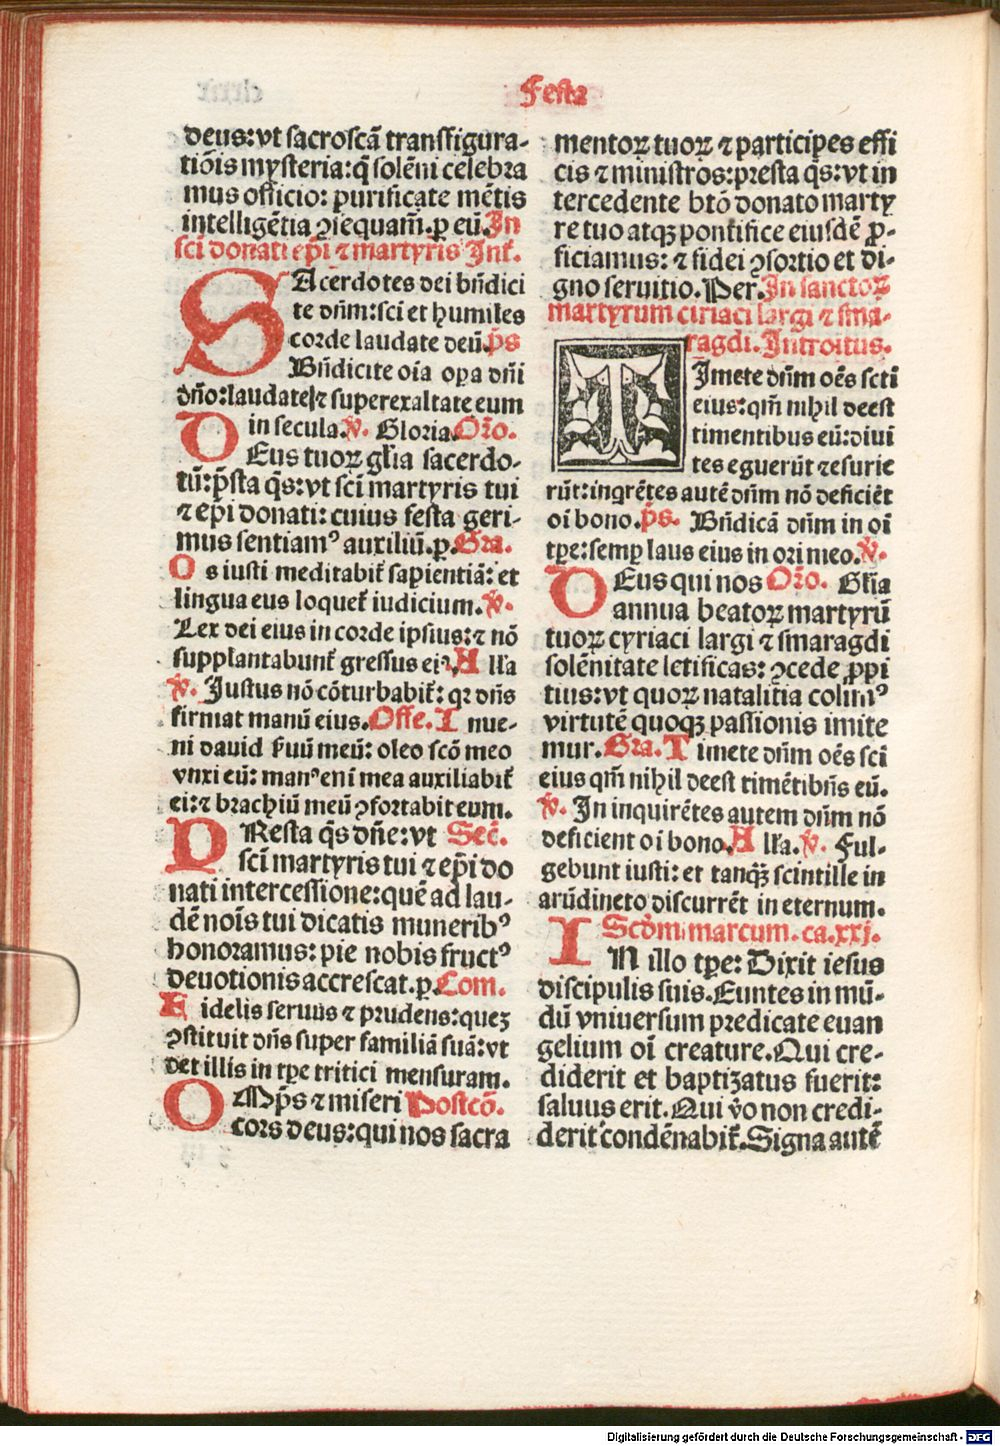 Festa
deus:vt sacroscā transfigura-
tiōis mysteria:q̄ solēni celebra
mus officio: purificate mētis
intelligētia ꝯsequam̄.p eū.In
sci̅ donati ep̄i ⁊ martyris Int̄.
SAcerdotes dei bn̄dici
te dn̄m:sci̅ et humiles
corde laudate deū.p̄s
Bn̄dicite oīa opa dn̄i
dn̄o:laudate ⁊ superexaltate eum
in secula.℣. Gloria.Oro̅.
DEus tuoꝝ gl̄ia sacerdo-
tū:p̄sta q̄s:vt sci̅ martyris tui
⁊ ep̄i donati: cuius festa geri-
mus sentiamꝰ auxiliū.p.Gra.
Os iusti meditabit̄ sapientiā: et
lingua eus loquet̄ iudicium.℣.
Lex dei eius in corde ipsius:⁊ nō
supplantabunt̄ gressus eiꝰ.All̄a
℣. Justus nō cōturbabit̄: qꝛ dn̄s
firmat manū eius.Offe.Inue-
ni dauid ẜuū meū: oleo scō meo
vnxi eū: manꝰ eni̅ mea auxiliabit̄
ei:⁊ brachiū meū ꝯfortabit eum.
PResta q̄s dn̄e:vt Sec̄.
sci̅ martyris tui ⁊ ep̄i do
nati intercessione:quē ad lau-
dē nōis tui dicatis muneribꝰ
honoramus: pie nobis fructꝰ
deuotionis accrescat.p.Com.
Fidelis seruus ⁊ prudens:quez
ꝯstituit dn̄s super familiā suā:vt
det illis in tpe tritici mensuram.
OMp̄s ⁊ miseri Postcō.
cors deus:qui nos sacra
mentoꝝ tuoꝝ ⁊ participes effi
cis ⁊ ministros:presta q̄s:vt in
tercedente btō donato marty
re tuo atqꝫ pontifice eiusdē ꝓ-
ficiamus: ⁊ fidei ꝯsortio et di-
gno seruitio.Per.In sanctoꝝ
martyrum ciriaci largi ⁊ sma-
ragdi.Introitus.
TImete dn̄m oēs scti
eius:qm̄ nihil deest
timentibus eū:diui
tes eguerūt ⁊ esurie
rūt:inqrētes autē dn̄m nō deficiēt
oi̅ bono.p̄s. Bn̄dicā dn̄m in oi̅
tpe:semp laus eius in ori meo.℣.
DEus qui nos Oro̅. Gl̄ia
annua beatoꝝ martyrū
tuoꝝ cyriaci largi ⁊ smaragdi
solēnitate letificas: ꝯcede ꝓpi
tius:vt quoꝝ natalitia colimꝰ
virtutē quoqꝫ passionis imite
mur.Gra.Timete dn̄m oēs sci̅
eius qm̄ nihil deest timētibn̄s eū.
℣. Inquirētes autem dn̄m nō
deficient oi̅ bono.All̄a.℣. Ful-
gebunt iusti: et tanqꝫ scintille in
arūdineto discurrēt in eternum.
Scd̄m marcum.ca.xxj.
IN illo tpe: Dixit iesus
discipulis suis.Euntes in mū-
dū vniuersum predicate euan
gelium oi̅ creature.Qui cre-
diderit et baptizatus fuerit:
saluus erit.Qui v̄o non credi-
derit condēnabit̄.Signa autē
Digitalisierung gefördert durch die Deutsche Forschungsgemeinschaft - DFG